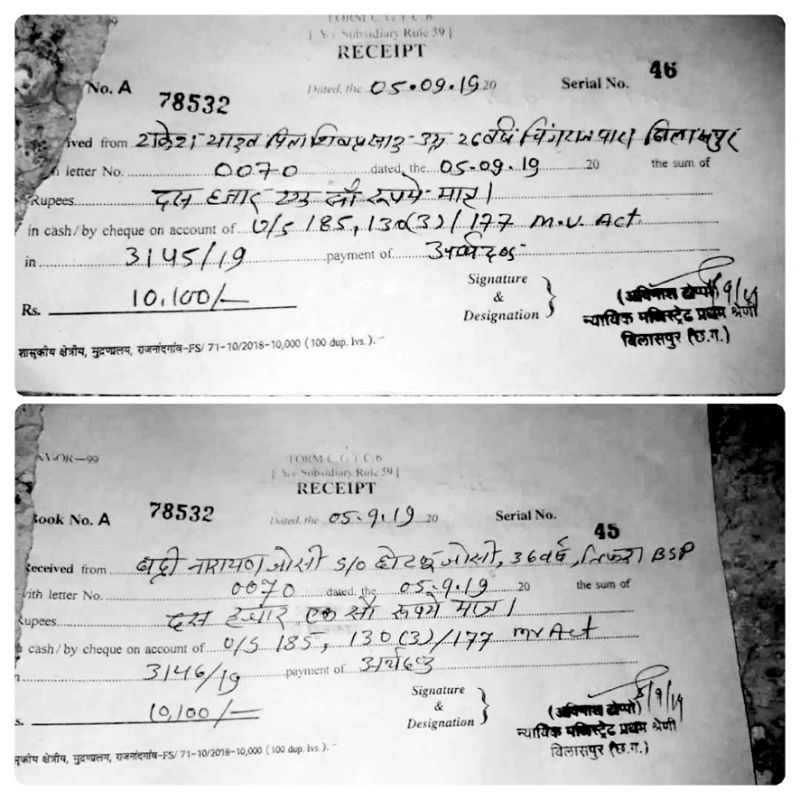 FORM C.G.T.C.6
[ See Subsidiary Rule 59 ]
RECEIPT
No. A 78532 Dated, the 05.09.19 20 Serial No. 46
ived from राकेश यादव पिता शिवप्रसाद उम्र 26 वर्ष चिंगराजपारा बिलासपुर
letter No. 0070 dated, the 05.09.19 20 the sum of
Rupees दस हजार एक सौ रूपये मात्र।
in cash/by cheque on account of U/S 185, 130(3)/177 M.V. Act
in 3145/19 payment of अर्थदण्ड
Signature & Designation
Rs. 10,100/-
(अविनाश टोप्पो)
न्यायिक मजिस्ट्रेट प्रथम श्रेणी
बिलासपुर (छ.ग.)
शासकीय क्षेत्रीय, मुद्रणालय, राजनांदगांव-FS/ 71-10/2018-10,000 (100 dup. lvs.).
OK-99
FORM C.G.T.C.6
[ See Subsidiary Rule 59 ]
RECEIPT
Book No. A 78532 Dated, the 05.9.19 20 Serial No. 45
Received from बद्री नारायण जोसी S/O छोटकू जोसी, 36 वर्ष, तिफरा BSP
ith letter No. 0070 dated, the 05.9.19 20 the sum of
Rupees दस हजार एक सौ रूपये मात्र।
cash/by cheque on account of U/S 185, 130(3)/177 mv Act
3146/19 payment of अर्थदण्ड
Signature & Designation
s. 10,100/-
5/9/19
(अविनाश टोप्पो)
न्यायिक मजिस्ट्रेट प्रथम श्रेणी
बिलासपुर (छ.ग.)
कीय क्षेत्रीय, मुद्रणालय, राजनांदगांव-FS/ 71-10/2018-10,000 (100 dup. lvs.).